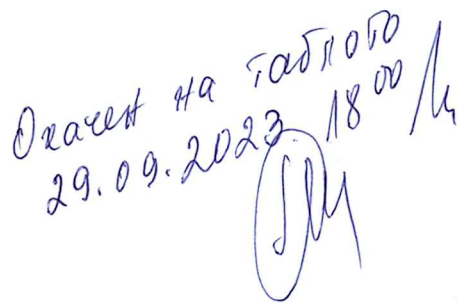 Окачен на таблото
29.09.2023 18 00